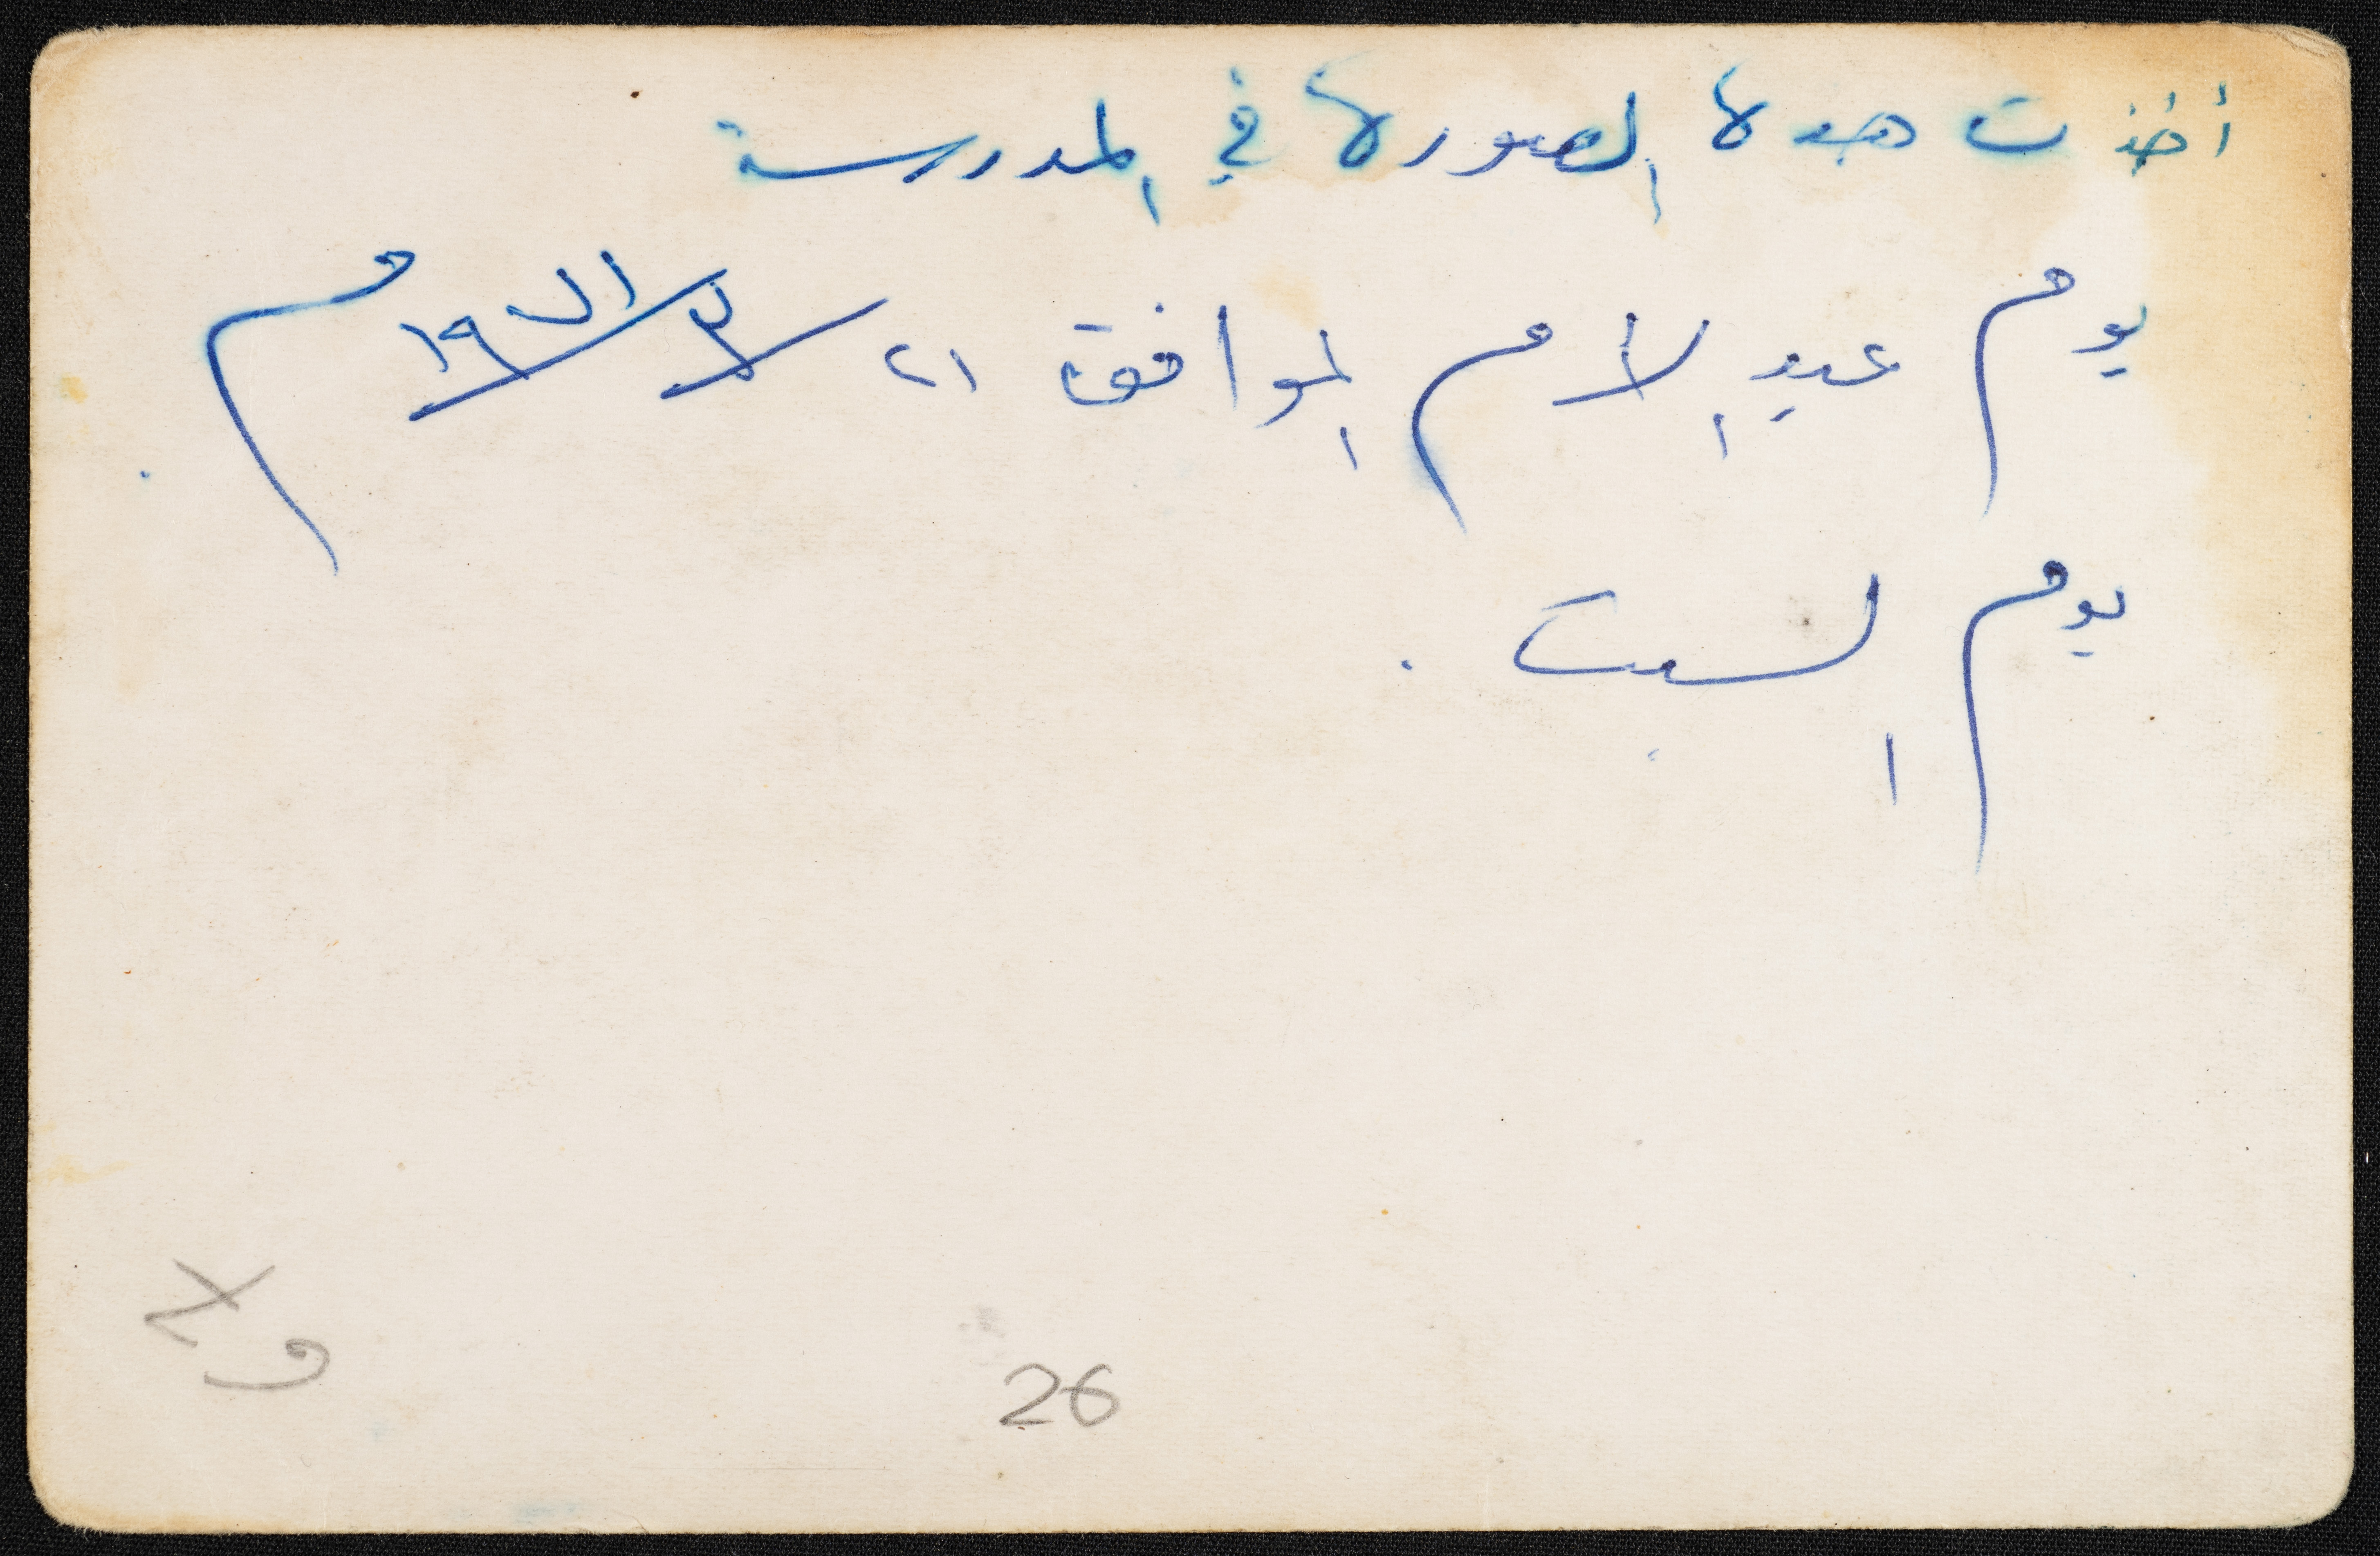 أخذت هده الصورة في المدرسة
يوم عيد الام الموافق ٢١/٣/١٩٧١م.
يوم السبت.
26